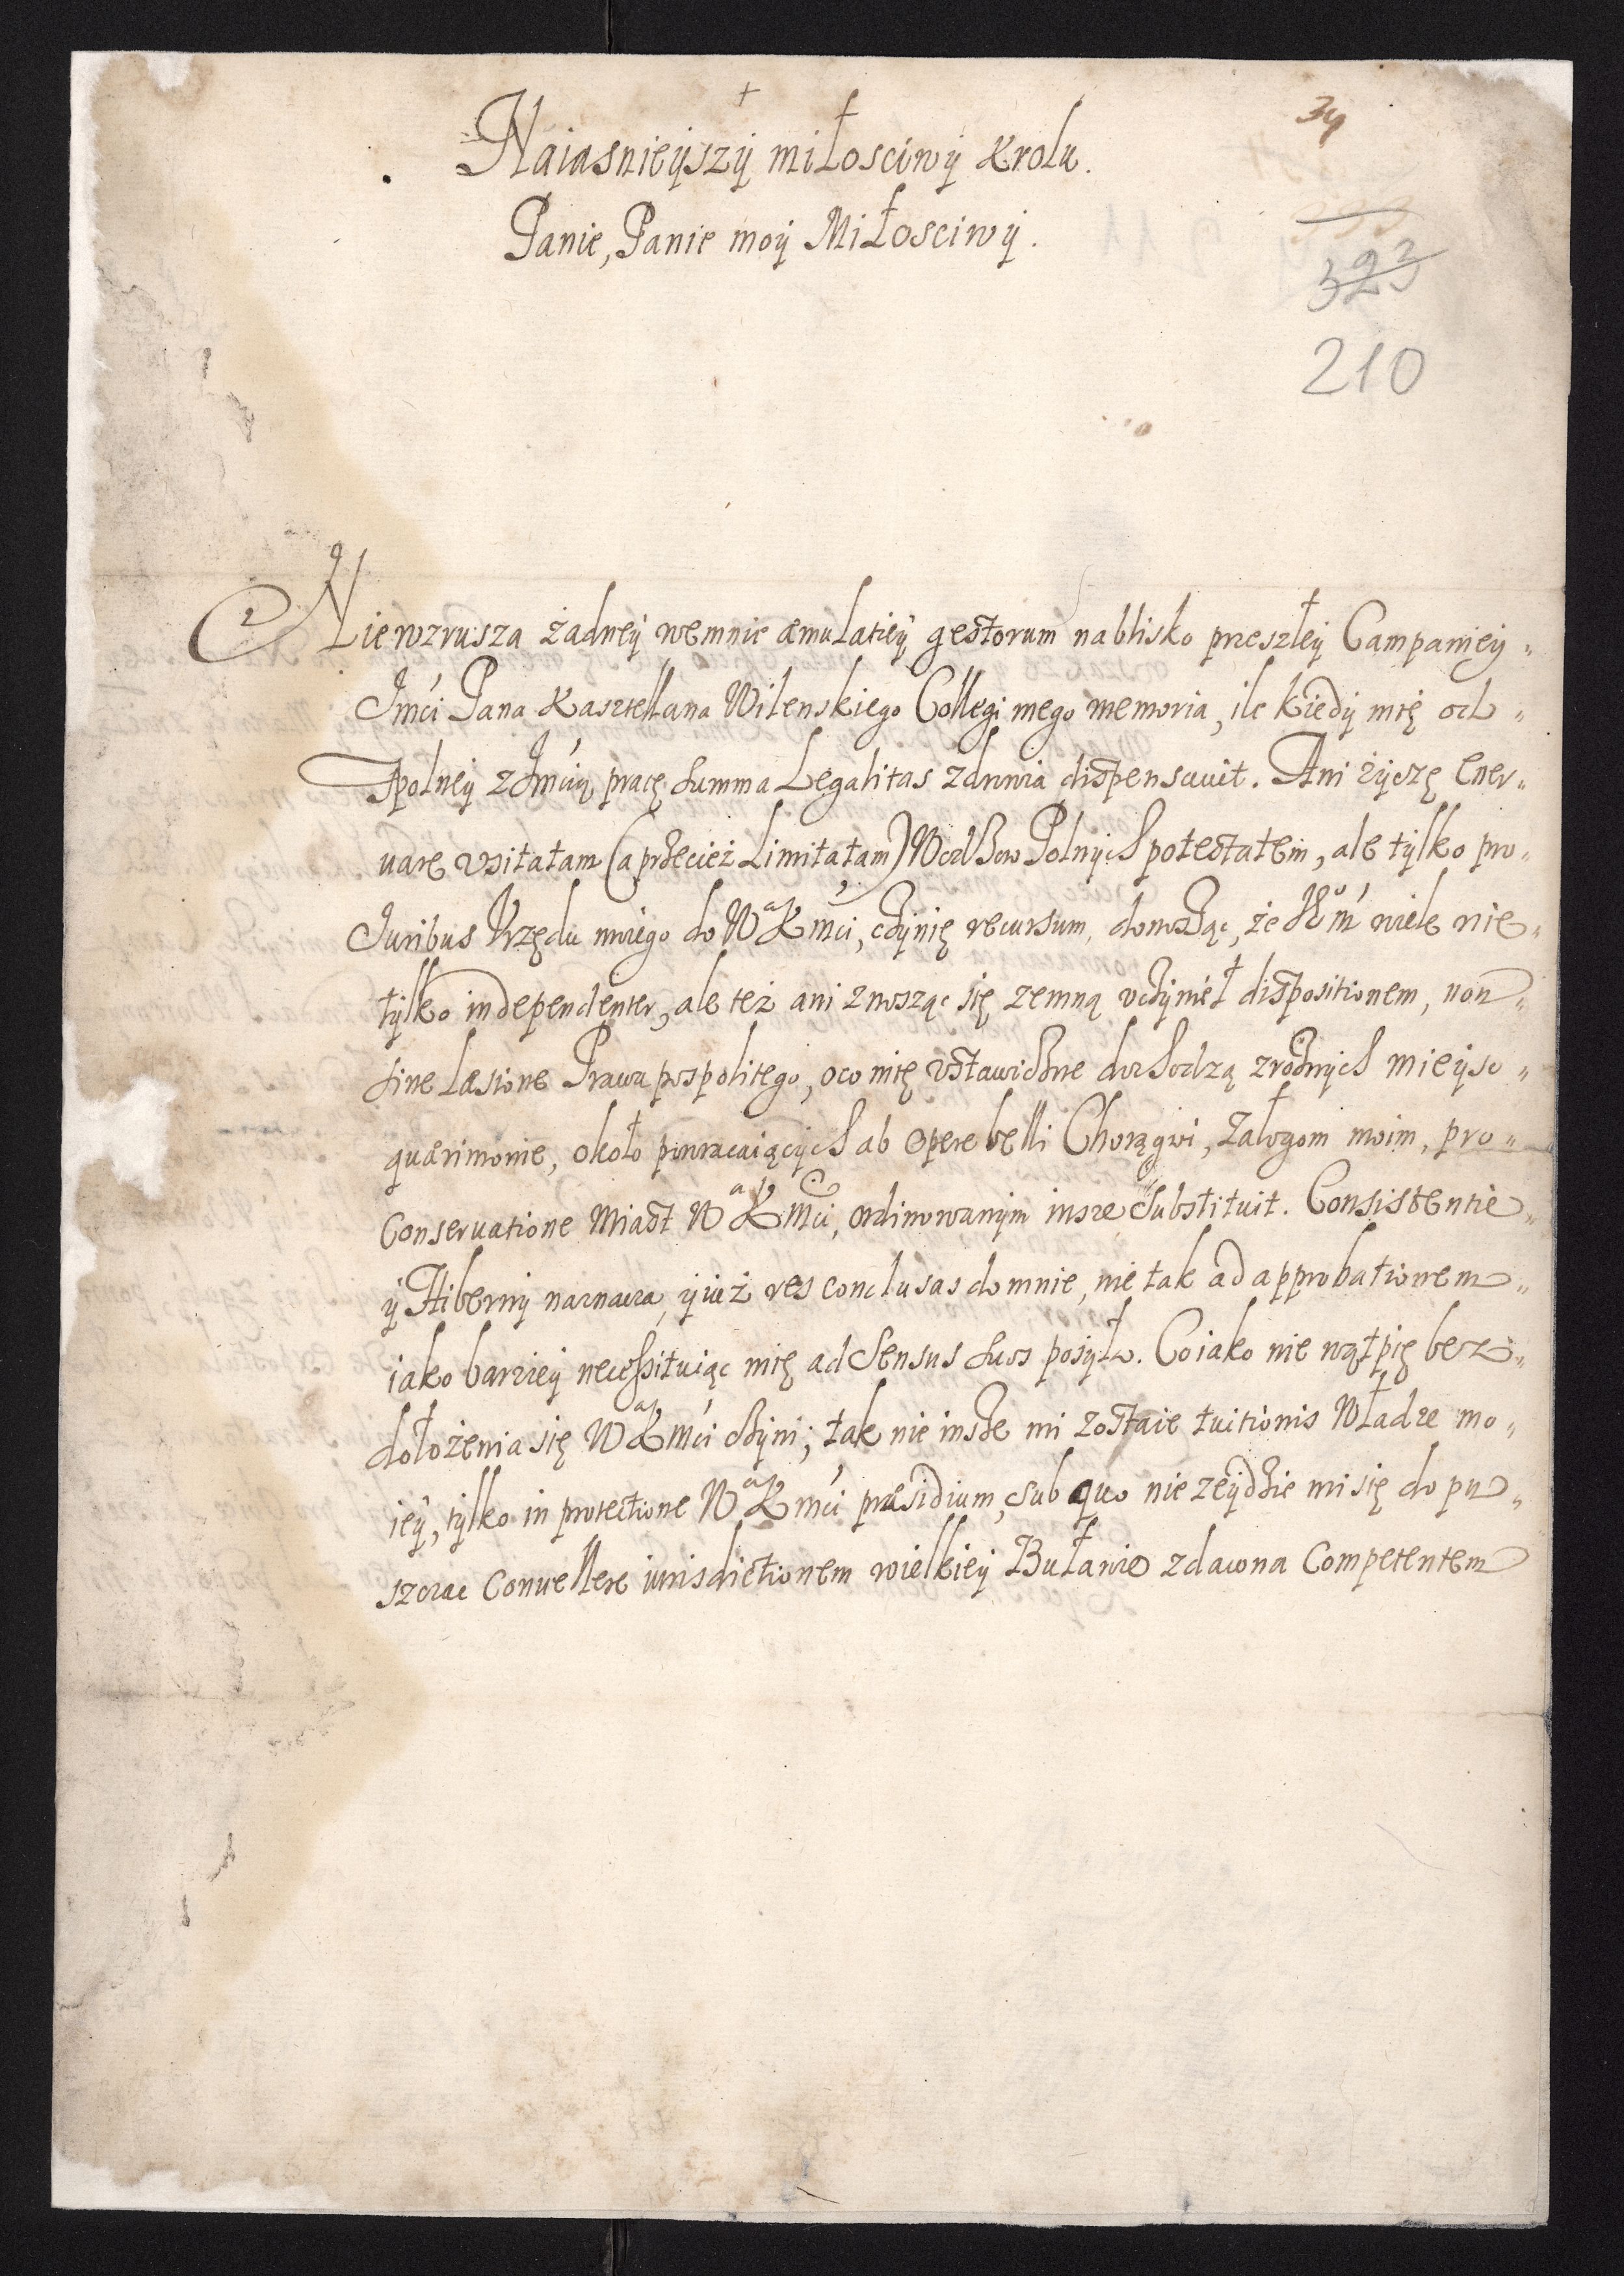 +
34
Naiasnieyszy miłosciwy Krolu.
Panie, Panie moy Miłosciwy.
323
210
Nie wzrusza żadney wemnie æmulatiey gestorum nablisko przeszłey Campaniey
Jmći Pana Kasztellana Wilenskiego Collegi mego memoria, ile kiedy mię od
Spolney z Jmćią pracę summa Legalitas zdrowia dispensauit. Ani życzę Ener
uare vsitatam (a przecież Limitatam) Wodzow Polnych potestatem, ale tylko pro
Juribus Vrzędu moiego do WaKmći, czynię recursum, donosząc, że wiele nie
tylko independenter, ale też ani znosząc się zemną vczynieł dispositionem, non
sine Læsione Prawa pospolitego, oco mię vstawiczne dochodzą zrożnych mieysc
quærimonie, około powracaiących ab opere belli Chorągwi, załogom moim, pro
Conseruatione Miast WaKmći, ordinowanym insze Substituit. Consistentie
y Hiberny naznacza, y iuż res conclusas do mnie, nie tak ad approbationem
iako barziey necessituiąc mię ad Sensus suos posyła. Co iako nie wątpię bez
dołożenia się WaKmći czyni; tak nie insze mi zostaie tuitionis Władze mo
iey, tylko in protectione WaKmći præsidium, sub quo nie zeydzie mi się dopu
szczac Conuellere iurisdictionem wielkiey Buławie zdawna Competentem